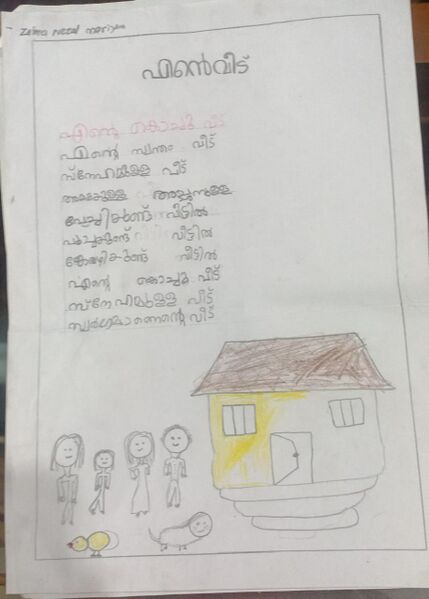 Zaima Nezal mariyam
എൻ്റെവീട്
എൻ്റെ കൊച്ചു വീട്
എൻ്റെ സ്വന്തം വീട്
സ്നേഹമുള്ള വീട്
അമ്മയുള്ള അച്ഛനുള്ള
ചേച്ചിക്കുണ്ട് വീട്ടിൽ
പൂച്ചക്കുണ്ട് വീട്ടിൽ
കോഴിക്കുണ്ട് വീട്ടിൽ
എൻ്റെ കൊച്ചു വീട്
സ്നേഹമുള്ള വീട്
സ്വർഗമാണെൻ്റെ വീട്